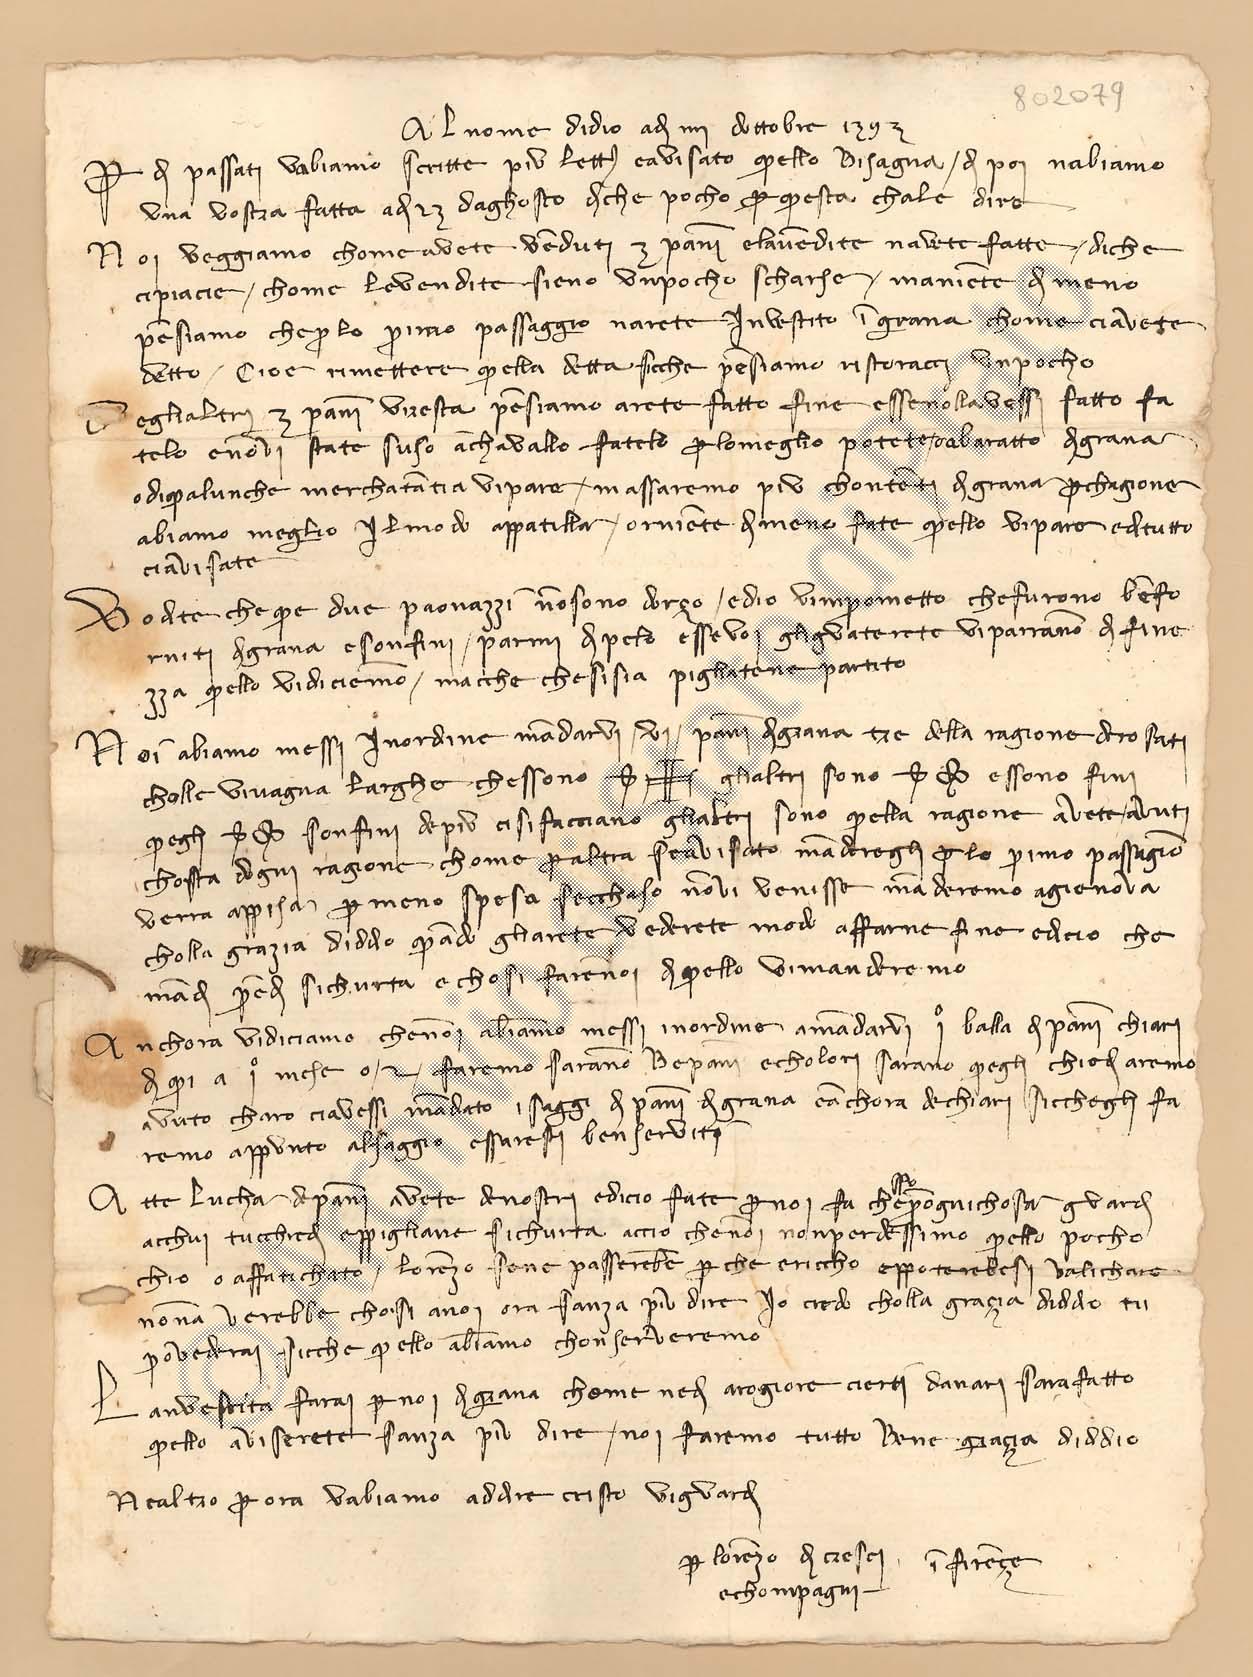 802079
Al nome di dio adi iiii dottobre 1393
P di passati vabiamo scritte piu lett eavisato quello bisagna / di poi nabiamo
una vostra fatta adi 23 daghosto diche pocho p questa chale dire
Noi veggiamo chome avete venduti 3 pani elavendite navete fatte / diche
cipiacie / chome levendite sieno unpocho scharse / maniente di meno
pensiamo che plo primo passaggio narete Investito i grana chome ciavete
detto / Cioe rimettere quella detta sicche pensiamo ristoracci unpocho
eglialtri 3 pani viresta pensiamo arete fatto fine essenollavessi fatto fa
telo enovi state suso achavallo fatelo plomeglio potete / oabaratto digrana
odiqualunche merchatantia vipare / massaremo piu chontenti digrana pchagione
abiamo meglio Ilmodo appatilla / o niente dimeno fate quello vipare editutto
ciavisate
Vo dite cheque due paonazzi nosono dorzo / edio vimpometto chefurono befo
rniti digrana esonfini / parmi dipelo essevoi gliguaterete viparrano di fine
zza quello vidiciemo / macche chesisia pigliatene partito
Noi abiamo messi Inordine madarvi / vi / pani digrana tre della ragione derosati
cholle vivagna larghe chessono glialtri sono essono fini
quegli sonfini depiu cisifacciano glialtri sono quella ragione avete avuti
chosta dogni ragione chome paltra seavisato maderegli plo primo passagio
verra appisa p meno spesa secchaso novi venisse maderemo agienova
cholla grazia diddio quado gliarete vederete modo affarne fine edicio che
madi predi sichurta echosi fareno di quello vimanderemo
Anchora vidiciamo chenoi abiamo messi inordine amadarvi i balla di pani chiari
di qui a i mese o / 2 / faremo sarano be pani echolori sarano quegli chiedi aremo
avuto charo ciavessi madato i saggi di pani digrana eachora dechiari sicchegli fa
remo appunto alsaggio essaresti benserviti
Atte lucha depani avete denostri edicio fate pnoi fa che pognichosa guardi
acchui tucchiedi eppigliane sichurta accio chenoi nonperdessimo quello pocho
chio oaffatichato / lorenzo sene passerebe pche ericcho eppoterebesi valichare
nonna verebbe chosi anoi ora sanza piu dire Io credo cholla grazia diddio tu
provederai sicche quello abiamo chonserveremo
Lanvestita farai pnoi digrana chome nedi arogiore cierti danari sara fatto
quello aviserete sanza piu dire / noi faremo tutto bene grazia diddio
Nealtro p ora vabiamo addire cristo viguardi
p lorenzo di cresci i firenze
echompagni